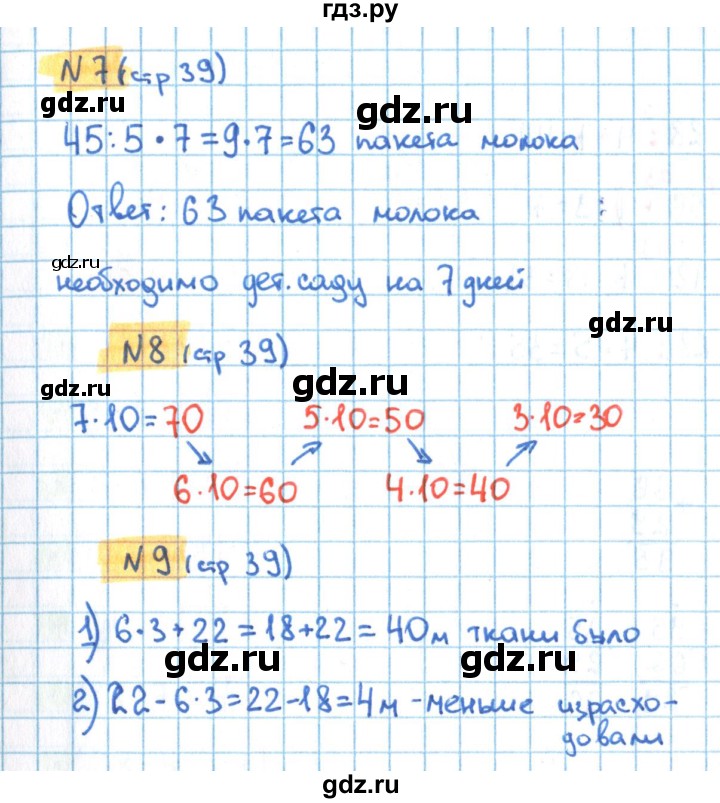 гдз.ру
N 7 (стр 39)
gdz.ru
gdz.ru
45 : 5 • 7 = 9 • 7 = 63 пакета молока
Ответ: 63 пакета молока :
gdz.ru
необходимо дет. саду на 7 дней
gdz.ru
N8 (стр 39)
gdz.ru
gdz.ru
7·10=70 5·10=50 3·10=30
6·10=60 4·10=40
N 9 (стр 39)
1) 6·3+22=18+22=40м ткани было
gdz.ru
gdz.ru
2) 22-6·3=22-18=4м -меньше израсхо-
довали
gdz.ru
gdz.ru